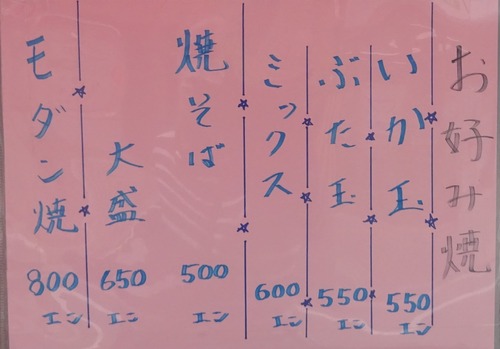 お好み焼
いか玉 550エン
ぶた玉 550エン
ミックス 600エン
焼そば 500エン
大盛 650エン
モダン焼 800エン